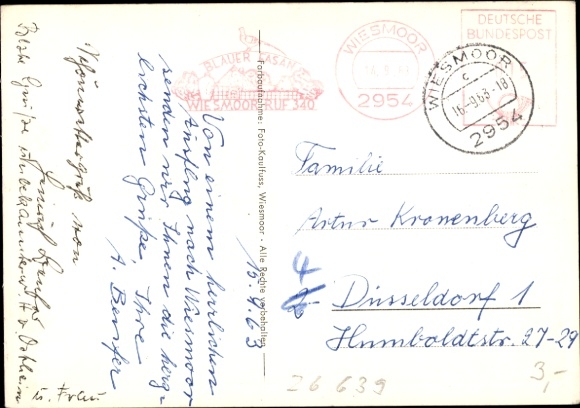 BLAUER FASAN
WIESMOOR RUF 340
WIESMOOR
2954
DEUTSCHE
BUNDESPOST
WIESMOOR
c
16.-9.63.-18
2954
15.9.63
Von einem herrlichen
Ausflug nach Wiesmoor
senden wir Ihnen die herz-
lichsten Grüße, Ihre
von
Beste Grüße
u. Frau
Farbaufnahme: Foto-Kaulfuss, Wiesmoor - Alle Rechte vorbehalten
Familie
Artur Kronenberg
4
Düsseldorf 1
Humboldtstr. 27-29
26639
3,-